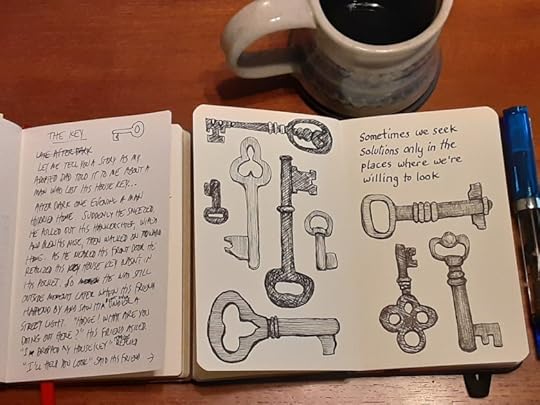 THE KEY
LATE AFTER DARK
LET ME TELL YOU A STORY AS MY
ADOPTED DAD TOLD IT TO ME ABOUT A
MAN WHO LOST HIS HOUSE KEY...
AFTER DARK ONE EVENING A MAN
HURRIED HOME. SUDDENLY HE SNEEZED.
HE PULLED OUT HIS HANKERCHIEF,
AND BLEW HIS NOSE, THEN WALKED ON TOWARD
HOME. AS HE NEARED HIS FRONT DOOR HE
REALIZED HIS KEY HOUSE KEY WASN'T IN
HIS POCKET. SO HE WAS STILL
OUTSIDE LATER WHEN HIS FRIEND
HAPPENED BY AND SAW HIM UNDER A
STREET LIGHT. "HODGE! WHAT ARE YOU
DOING OUT HERE?" HIS FRIEND ASKED.
"I DROPPED MY HOUSE KEY"
"I'LL HELP YOU LOOK" SAID HIS FRIEND →
Sometimes we seek
solutions only in the
places where we're
willing to look